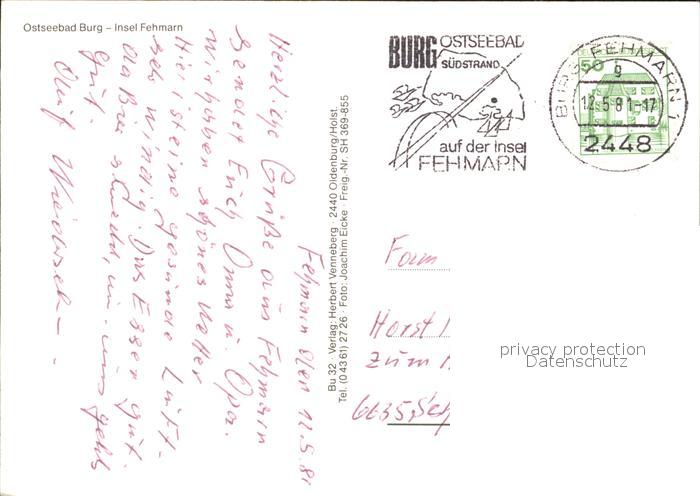 Ostseebad Burg – Insel Fehmarn
Fehmarn den 12.5.81
Herzliche Grüße aus Fehmarn
sendet Euch Oma u. Opa.
Wir haben schönes Wetter
Hier ist eine gesunde Luft.
sehr windig. Das Essen gut.
das Bier schmeckt, uns geht
gut.
Auf Wiederseh
Bu 32 · Verlag: Herbert Venneberg · 2440 Oldenburg/Holst.
Tel. (0 43 61) 27 26 · Foto: Joachim Eicke · Freig.-Nr. SH 369-855
BURG OSTSEEBAD
SÜDSTRAND
auf der Insel
FEHMARN
BURG FEHMARN 1
g
12.-5.81-17
2448
50
Fam
Horst
Zum
6635 Sch
privacy protection
Datenschutz